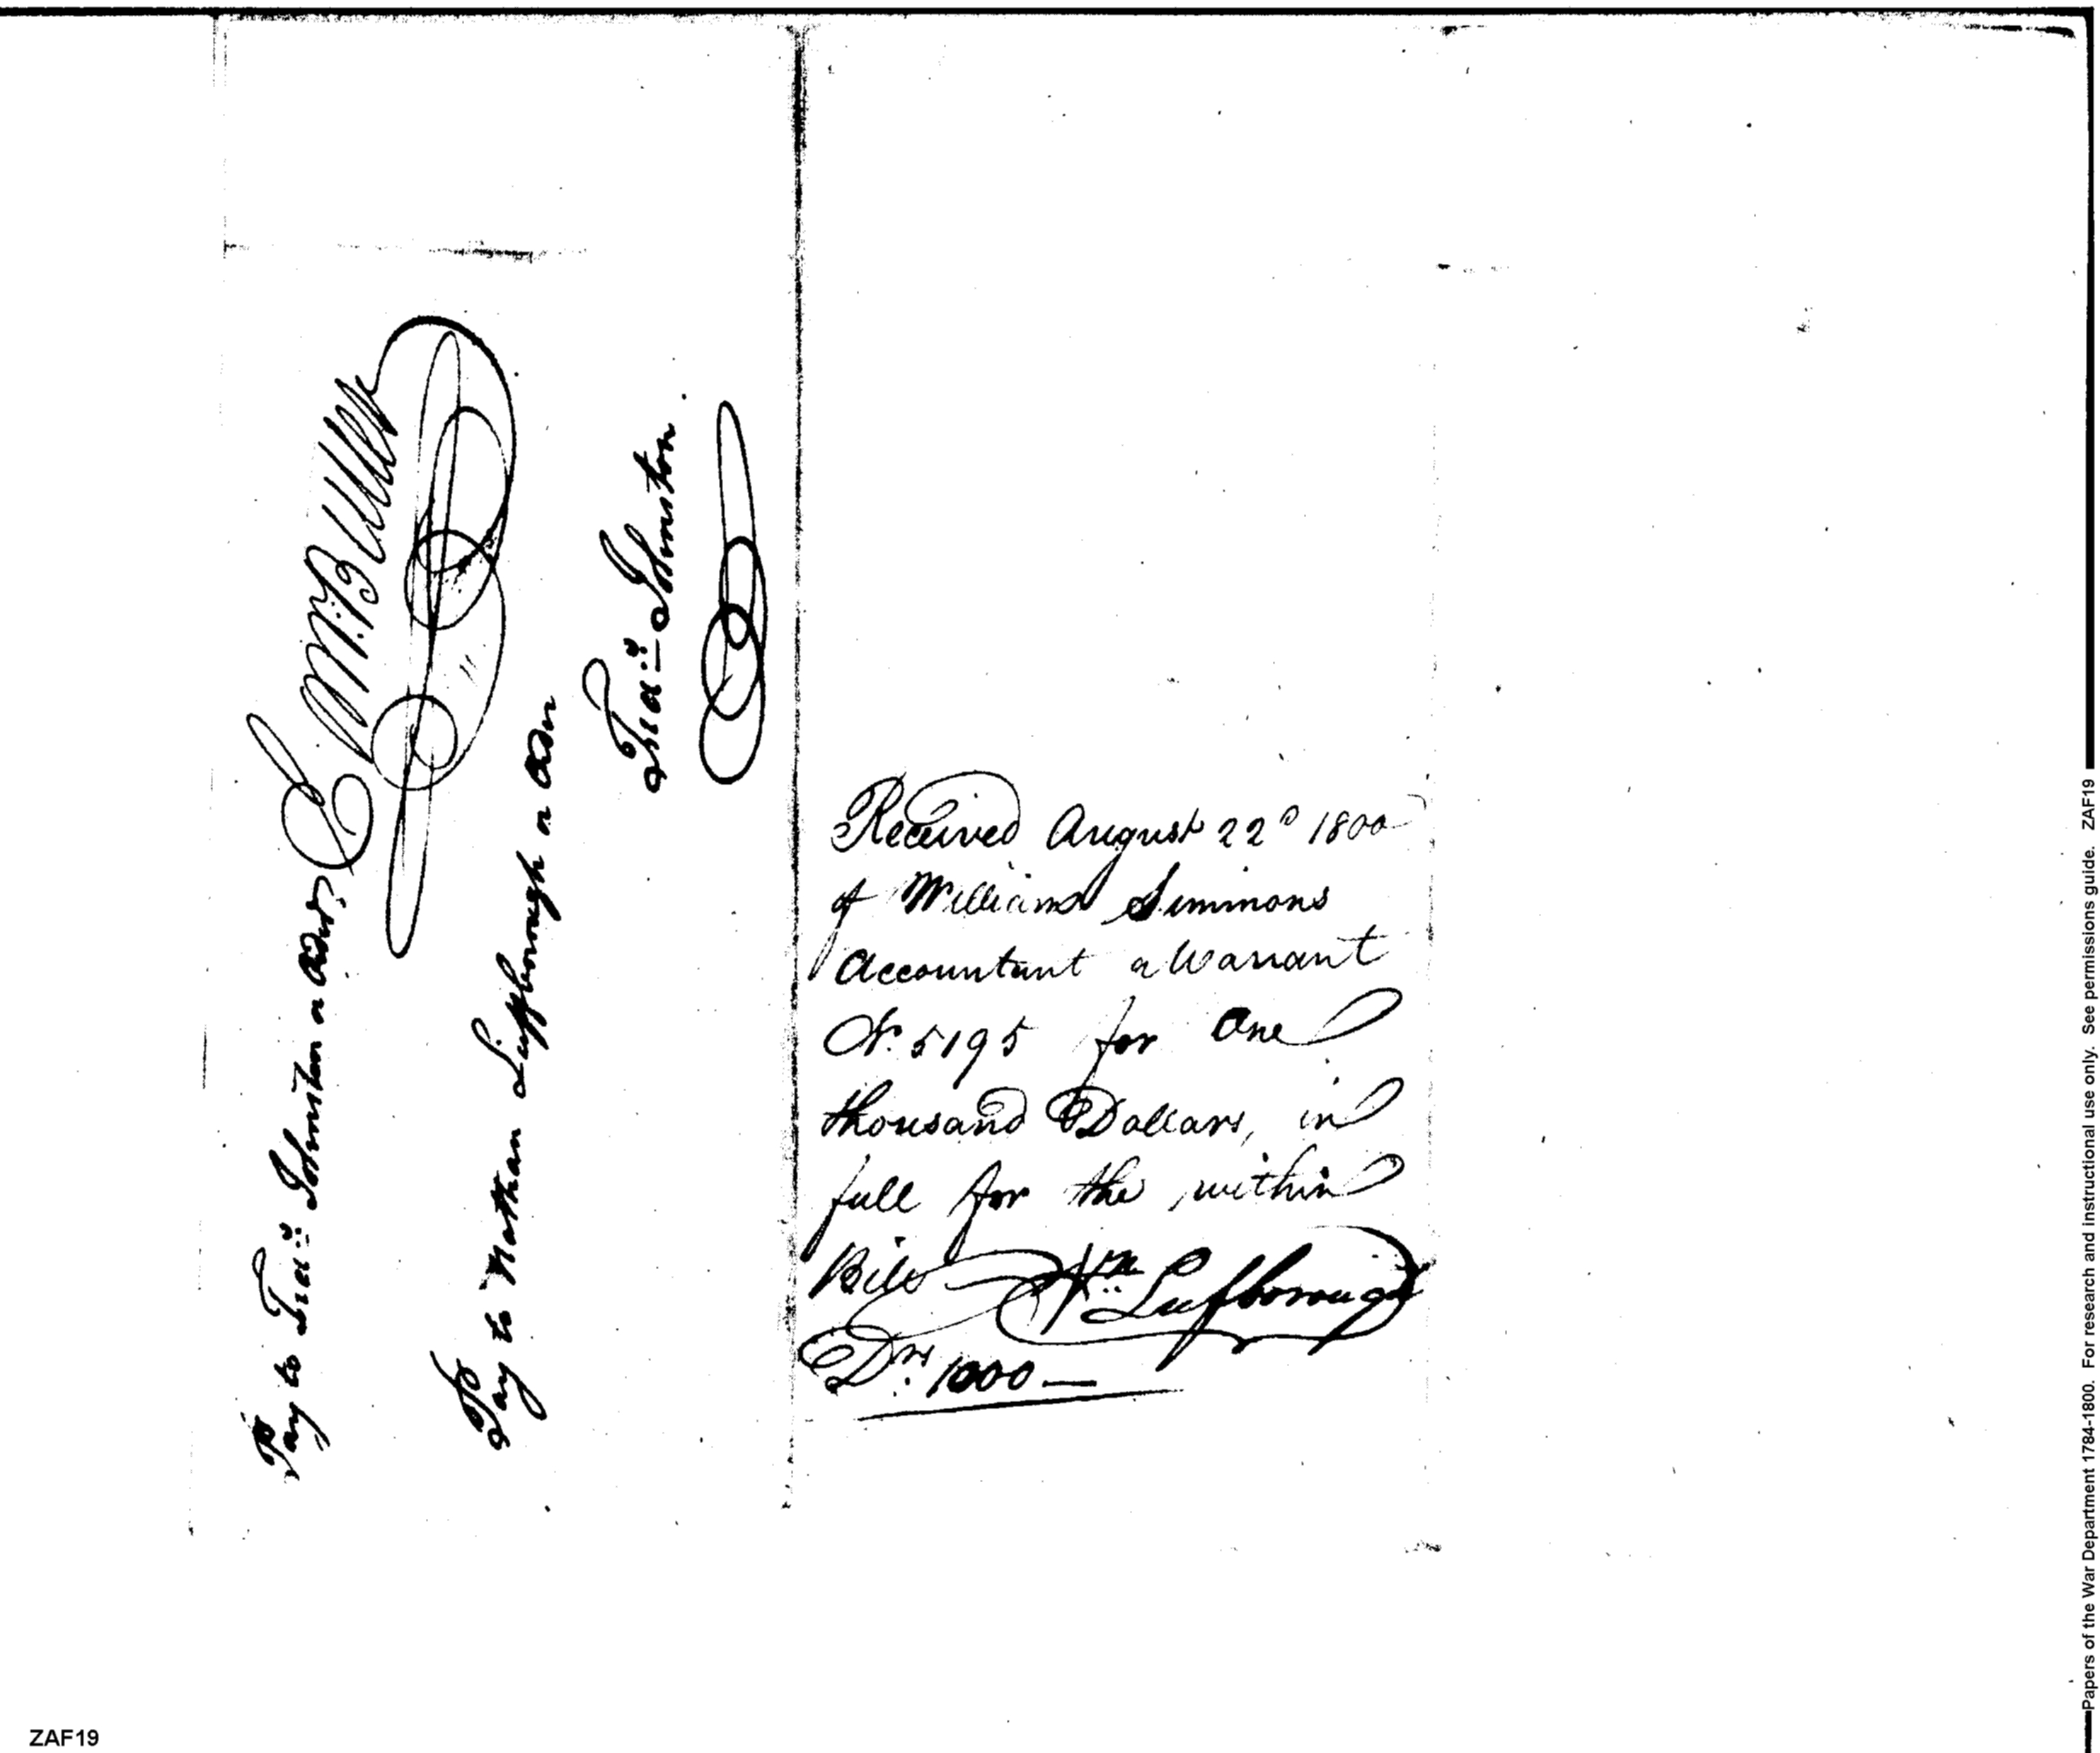 Pay to Fra:s Johnston or Order,
E. M. Butler
Pay to Nathan Luffborough or Order
Fra:s Johnston.
Received August 22d 1800
of William Simmons
Accountant a Warrant
No. 5195 for One
thousand Dollars, in
full for the within
Bill
Nn: Lufborough
Drs. 1000 —
Papers of the War Department 1784-1800. For research and instructional use only. See permissions guide. ZAF19
ZAF19